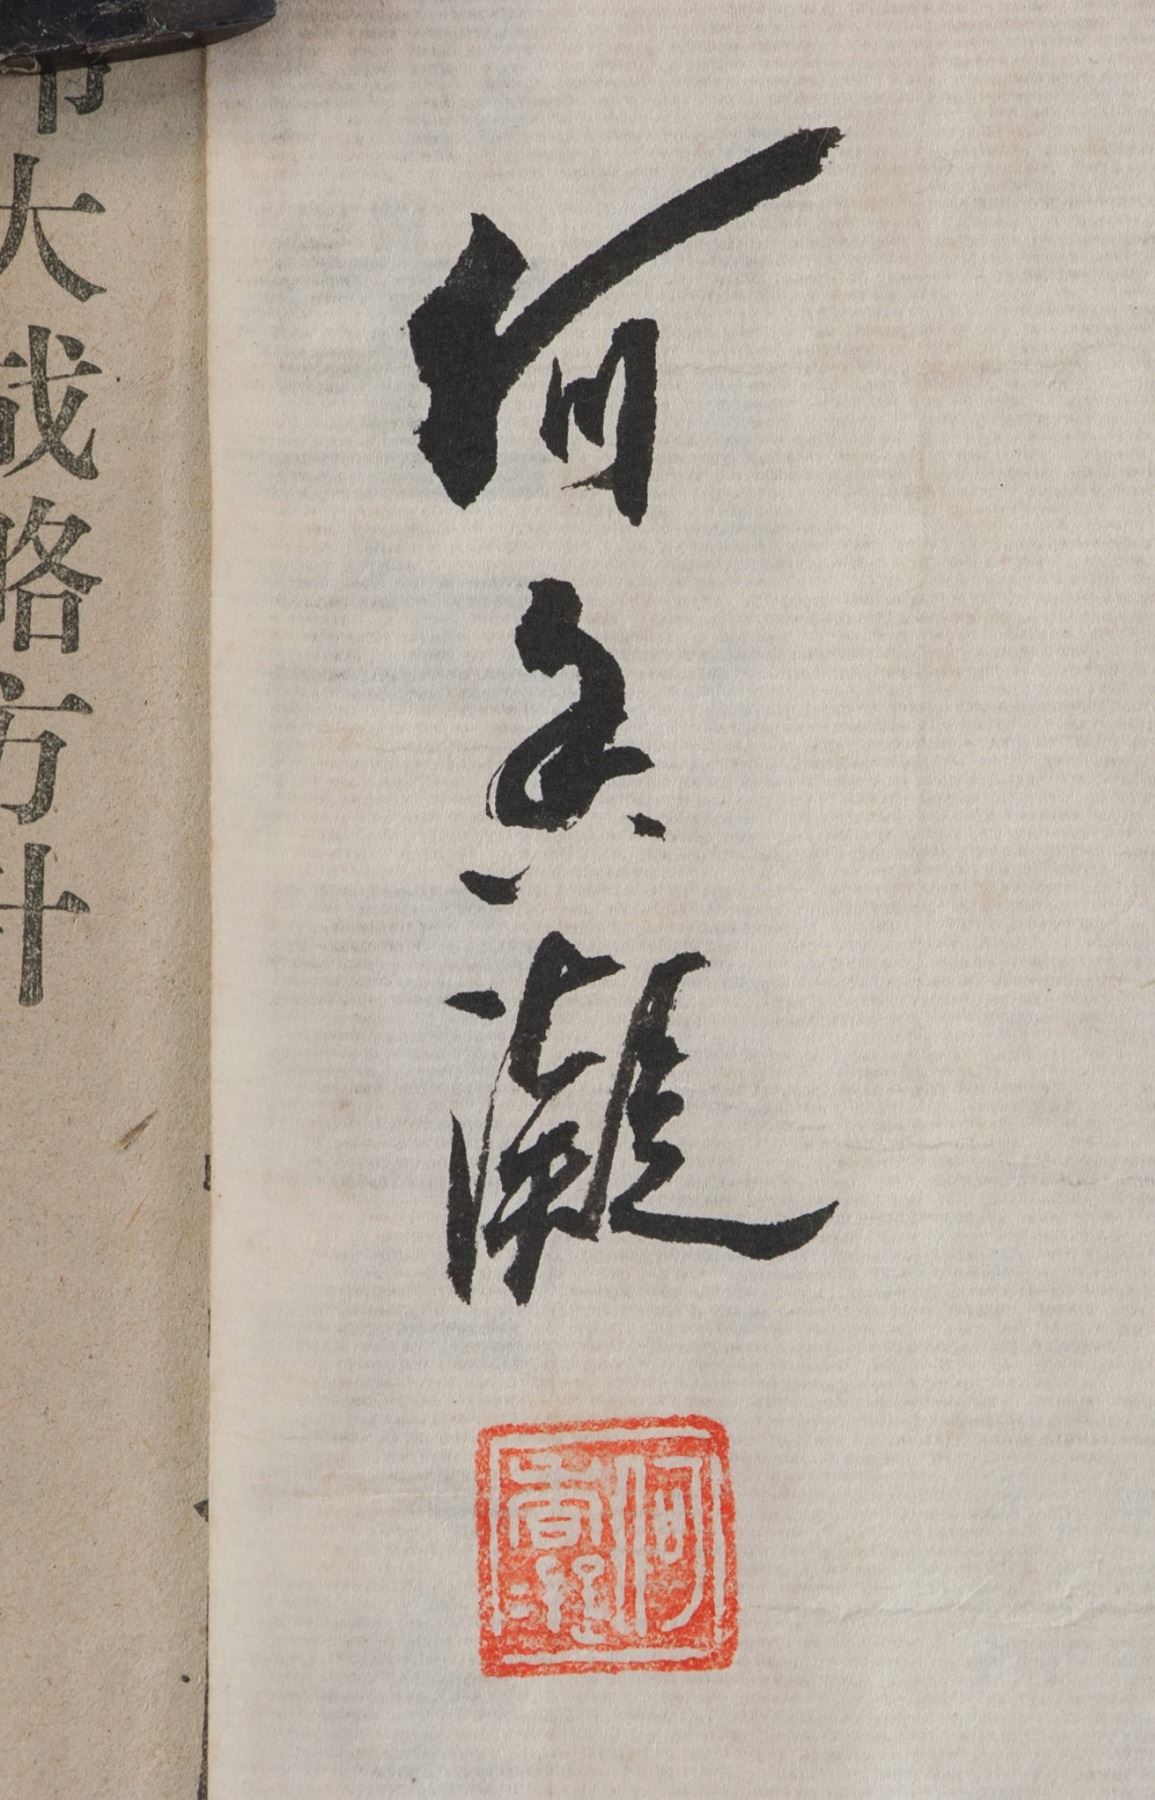 何香凝
何香凝
大战略方针